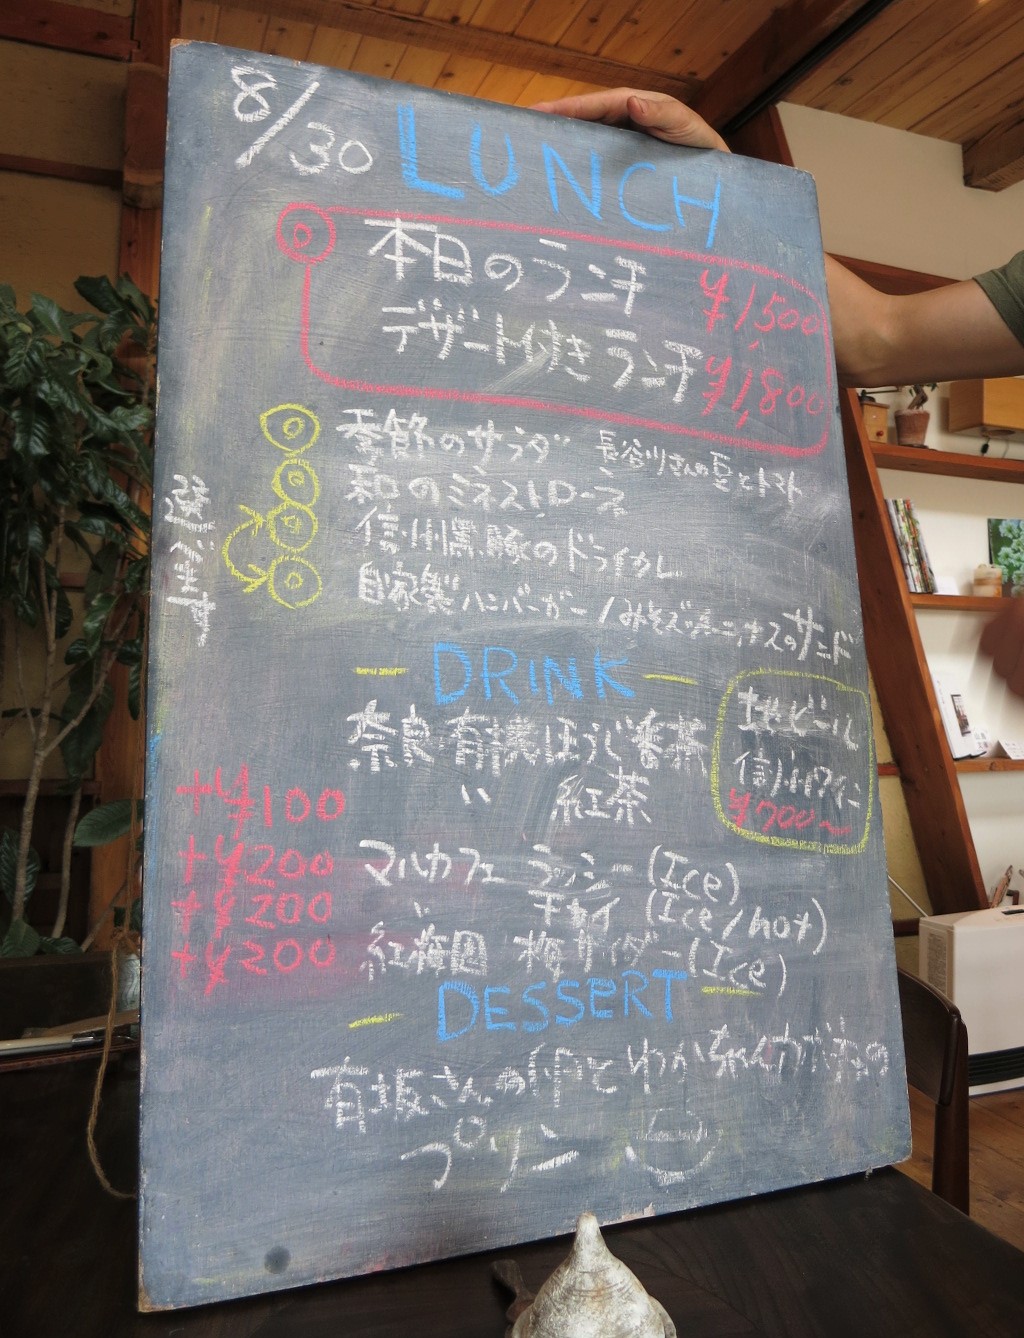 8/30 LUNCH
本日のランチ ¥1,500
デザート付きランチ ¥1,800
季節のサラダ 長谷川さんの豆とトマト
和のミネストローネ
信州黒豚のドライカレー
自家製ハンバーガー/みそズッキーニナスのサンド
選べます
DRINK
奈良 有機ほうじ番茶
〃 紅茶
+¥100
地ビール
信州ワイン
¥700〜
+¥200 マルカフェ ラッシー(Ice)
+¥200 〃 チャイ(Ice/hot)
+¥200 紅梅園 梅サイダー(Ice)
DESSERT
有坂さんの卵と
プリン